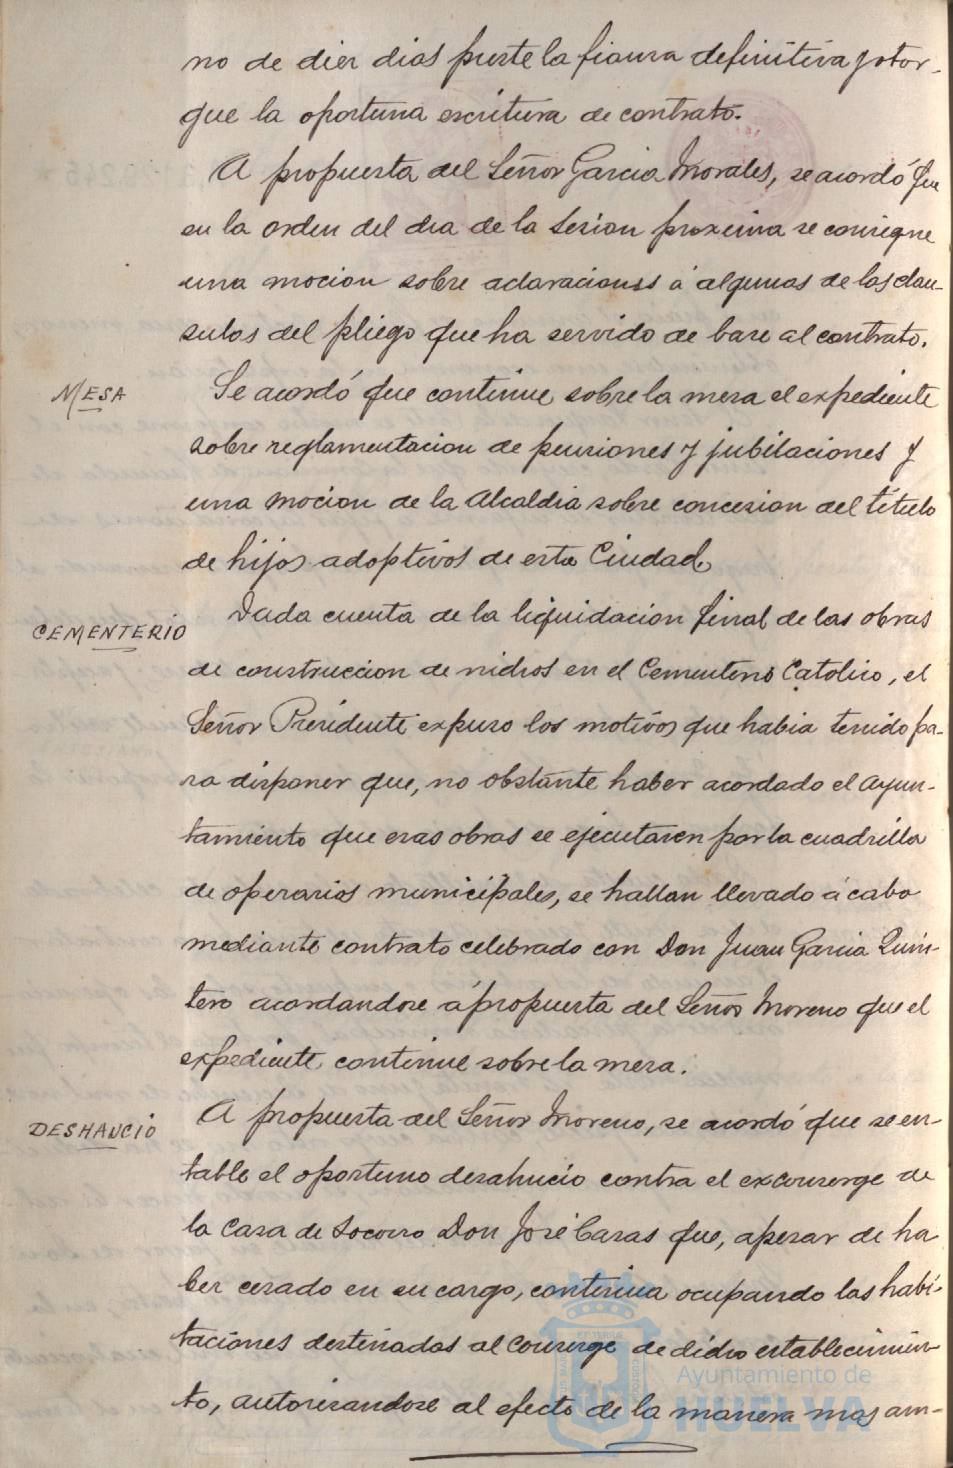 no de diez dias preste la fianza definitiva y otor-
gue la oportuna escritura de contrato.
A propuesta del Señor Garcia Morales, se acordó que
en la orden del dia de la sesion proxima se consigne
una mocion sobre aclaraciones á algunas de las clau-
sulas del pliego que ha servido de base al contrato.
MESA
Se acordó que continue sobre la mesa el expediente
sobre reglamentacion de pensiones y jubilaciones y
una mocion de la Alcaldia sobre concesion del titulo
de hijos adoptivos de esta Ciudad
CEMENTERIO
Dada cuenta de la liquidacion final de las obras
de construccion de nichos en el Cementerio Catolico, el
Señor Presidente expuso los motivos que habia tenido pa-
ra disponer que, no obstante haber acordado el Ayun-
tamiento que esas obras se ejecutasen por la cuadrilla
de operarios municipales, se hallan llevado á cabo
mediante contrato celebrado con Don Juan Garcia Quin-
tero acordandose á propuesta del Señor Moreno que el
expediente continue sobre la mesa.
DESHAUCIO
A propuesta del Señor Moreno, se acordó que se en-
table el oportuno desahucio contra el exconserge de
la Casa de Socorro Don José Casas que, apesar de ha
ber cesado en su cargo, continua ocupando las habi-
taciones destinadas al Conserge de dicho establecimien-
to, autorizandose al efecto de la manera mas am-
Ayuntamiento de
HUELVA